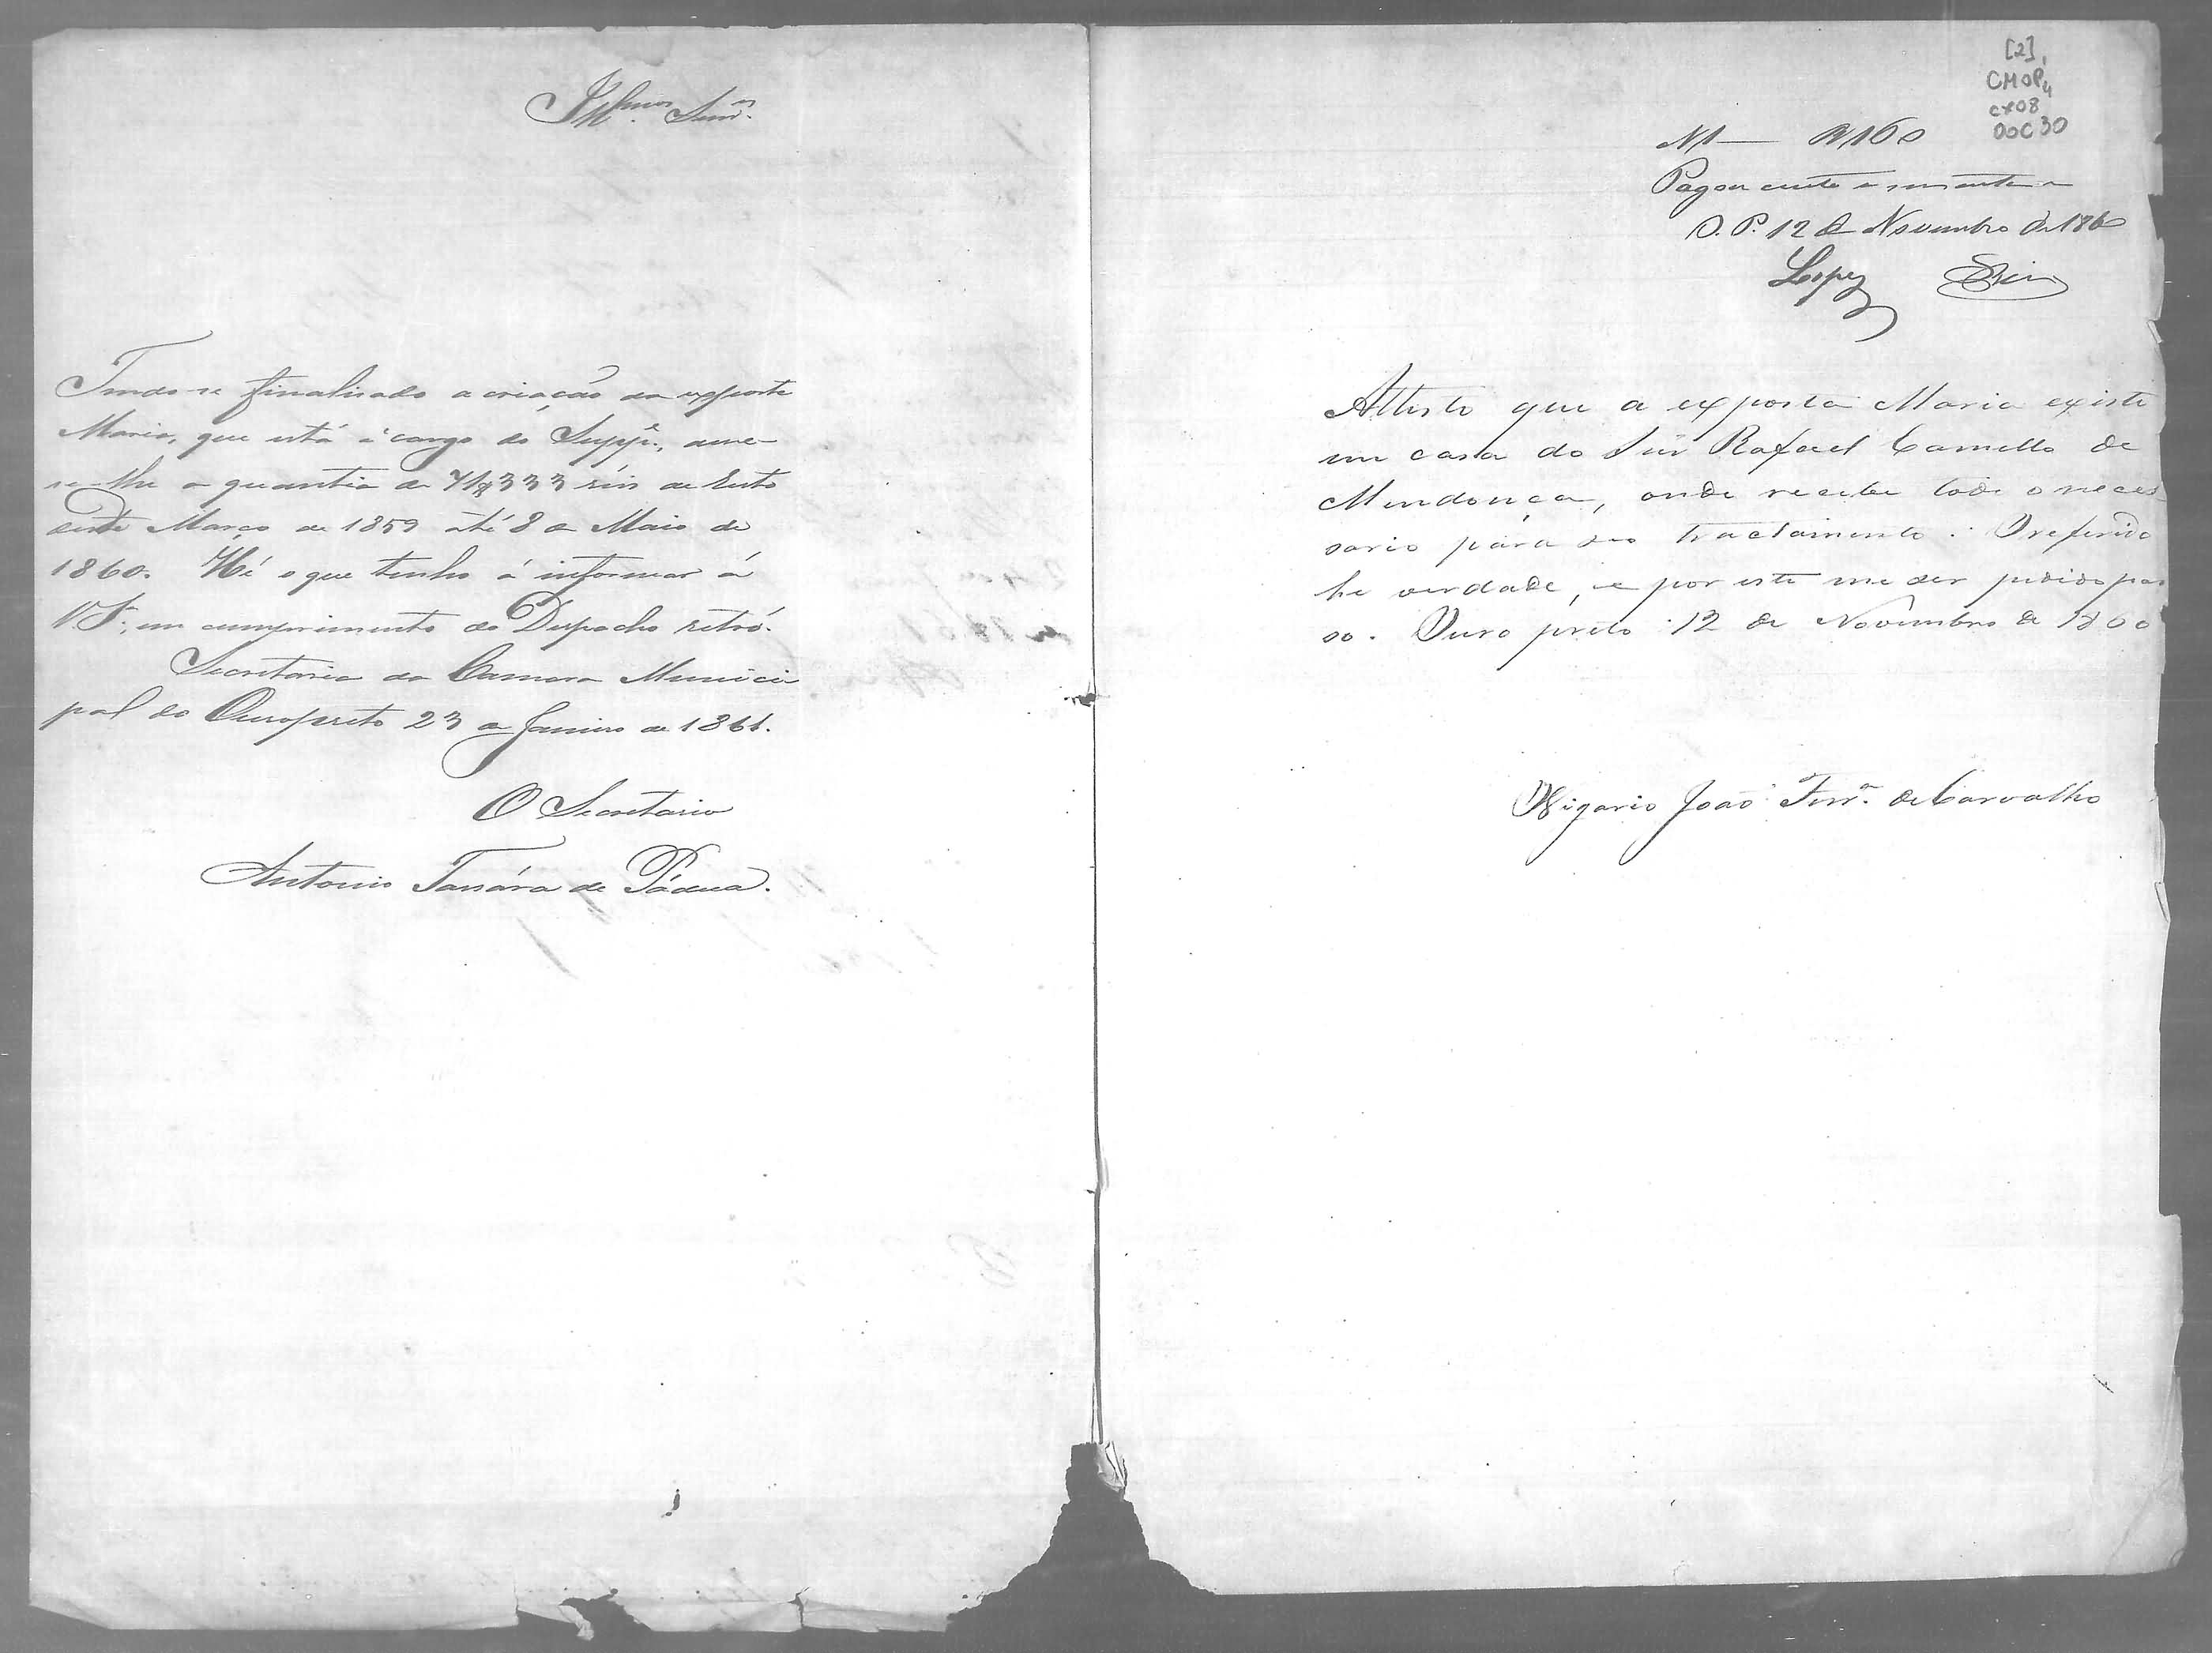 Illmos. Snres.
Tendo-se finalisado a criação da exposta
Maria, que está á cargo do Suppe.,
se-lhe a quantia de 71$333 reis de resto
desde Março de 1859 até 8 de Maio de
1860. Hé o que tenho á informar á
V.S., em cumprimento do Despacho retró.
Secretaria da Camara Munici
pal do Ouropreto 23 de Janeiro de 1861.
O Secretario
Antonio de Pádua.
[2]
CMOP
cx08
DOC30
N1 160
Pagou cento e sessenta rs
O. P. 12 de Novembro de 1860
Lopes
Attesto que a exposta Maria existe
em casa do Snr Rafael Camello de
Mendonça, onde recebe todo o neces
sario para seo tractamento. O referido
he verdade, e por este me ser pedido pas
so. Ouro preto 12 de Novembro de 1860
O Vigario João Ferra. de Carvalho